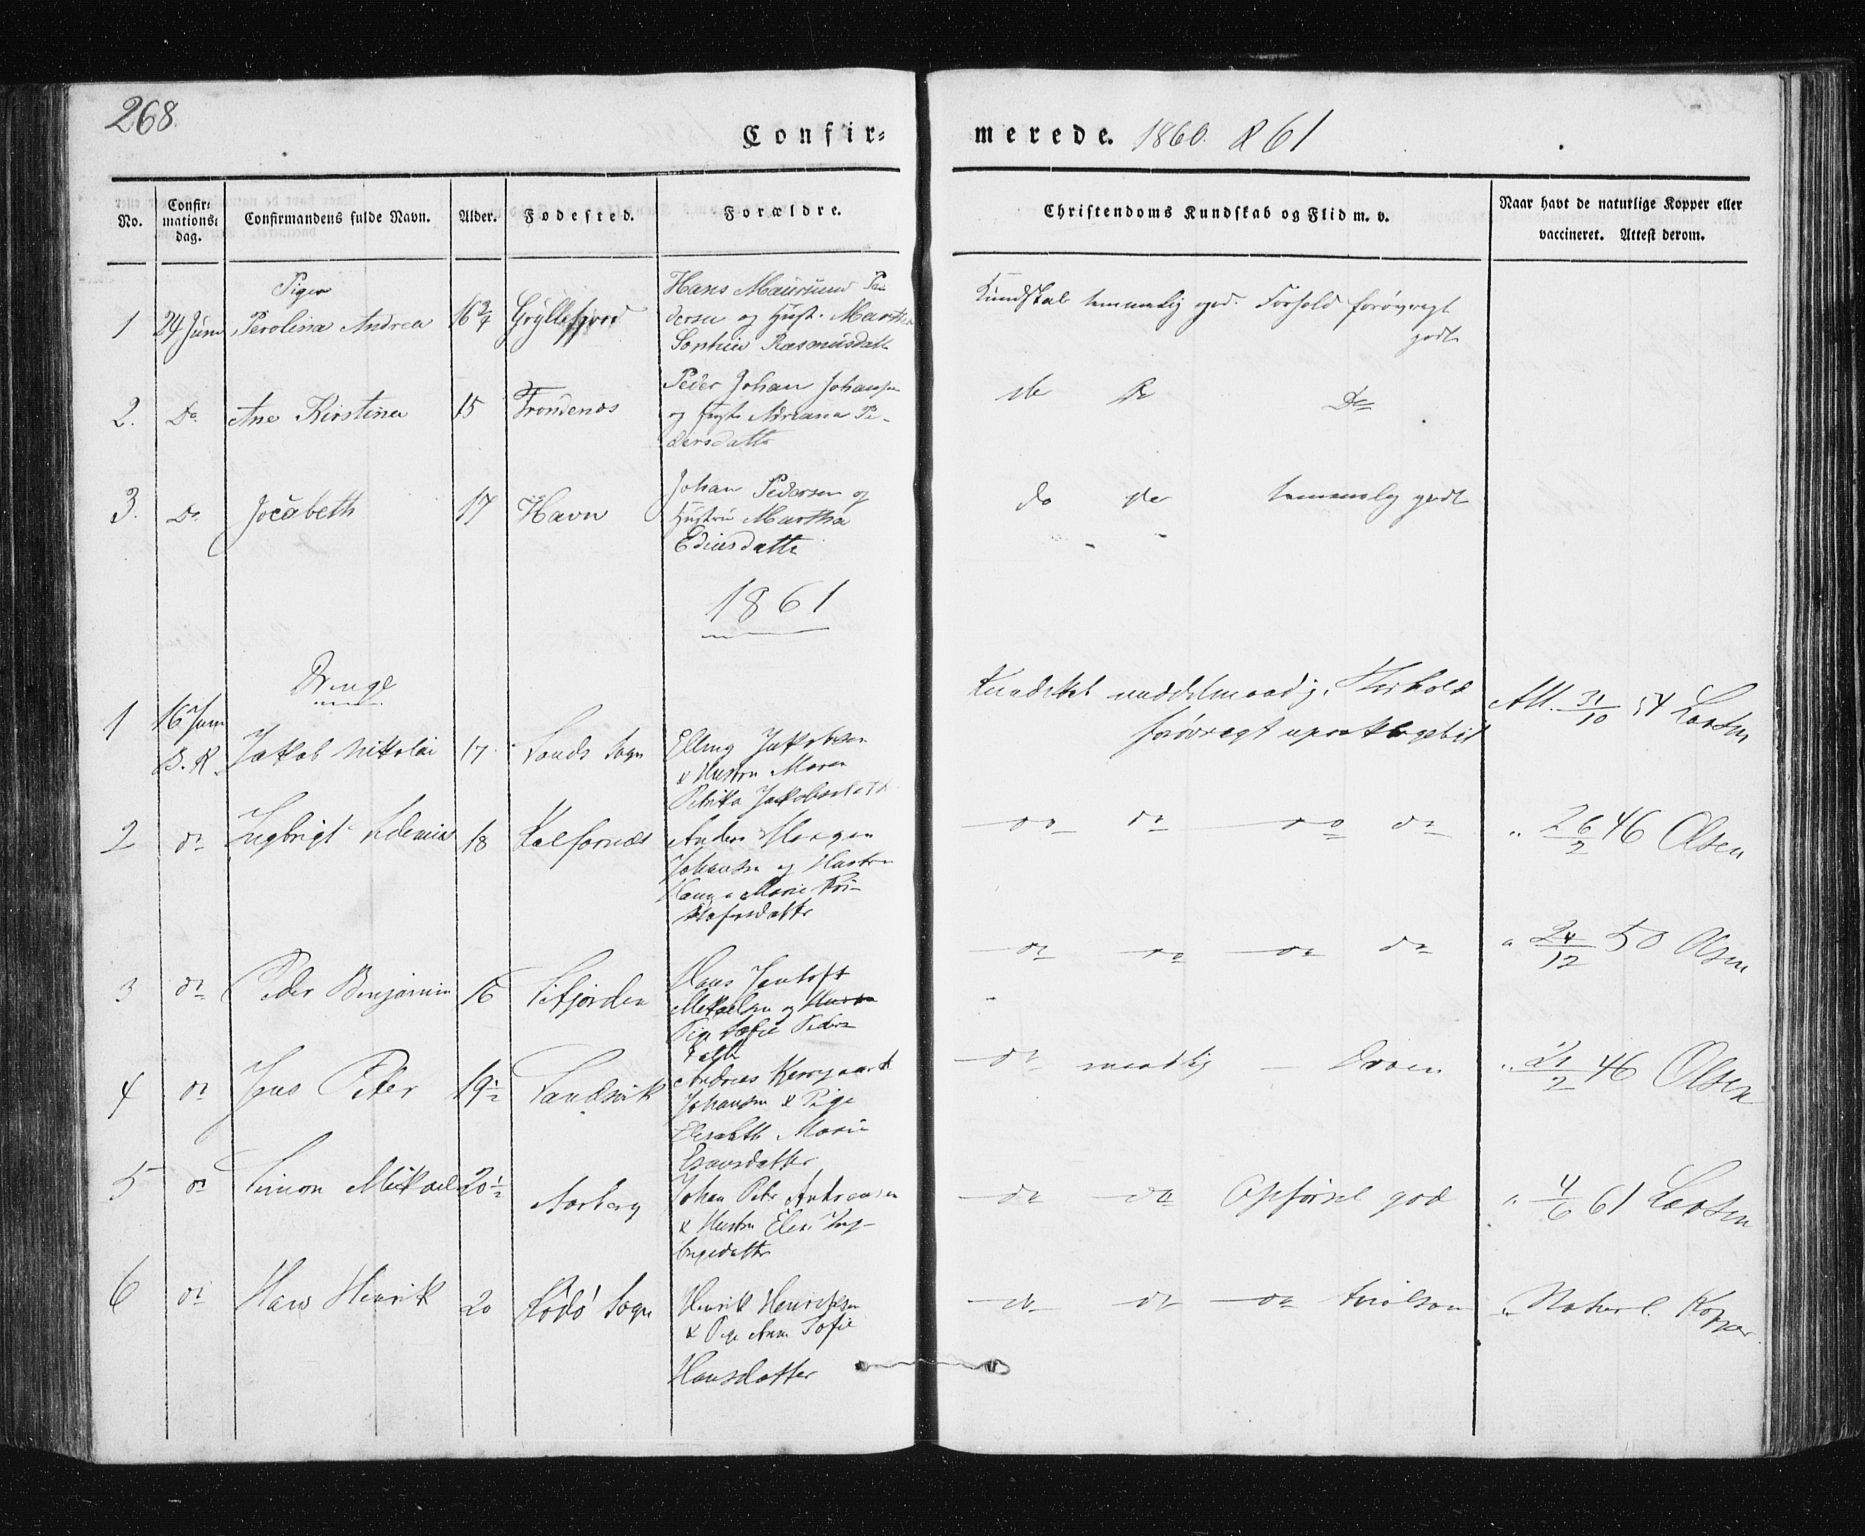 268.
Confir= merede. 1860. & 61
No. Confirmations: dag. Confirmandens fulde Navn. Alder. Fødested. Forældre. Christendoms Kundskab og Flid m. v. Naar havt de natutlige Kopper eller vaccineret. Attest derom.
Piger
1 24 Juni Perolina Andrea 16 Gryllefjord Hans Pe-
dersen og Hust. Martha
Sophie Rasmusdatt
Kundskab temmelig god. Forhold forøvrigt
godt
2. Do Ane Kirstina 15 Trondenæs Peder Johan Johansen
og Adriana Pe-
dersdatte
do Do Do
3. Do Jocabeth 17 Havn Johan Pedersen og
Hustru Martha
datte
do do temmelig godt
1861
Drenge
1 16 Juni
B. K Jakob Nikolai 17 Sands Sogn Elling Jakobsen
& Hustru Maren
Petrika Jakobsdatt
Kundskab middelmaadig, Forhold
forøvrigt upaaklageligt
Att. 31/10 54 Larsen
2 do Ingbrigt 18 Kalfarnæs Anders Haagen
Johansen og Hustru
Marie Kri-
stofersdatter
do do do do " 26/2 46 Olsen
3 do Peder Benjamin 16 Sifjorden Hans Jentoft
Mekaelsen og Hustru
Pige Sofie Peders
datte
do do do do " 24/12 50 Olsen
4 do Jens Peter 19½ Sandvik Andreas
Johansen & Pige
Elisabeth Marie
Esaisdatter
do maadelig - " 21/2 46 Olsen
5 do Simon Mikael 20½ Aarberg Johan Peter Andreasen
& Hustru Elen Ing-
brigtdatter
do do Opførsel god " 4/6 61 Larsen
6 do Hans Henrik 20 Rödö Sogn Henrik Henriksen
& Pige Anne Sofie
Hansdatter
do do do tvivlsom " Naturl. Kopper.